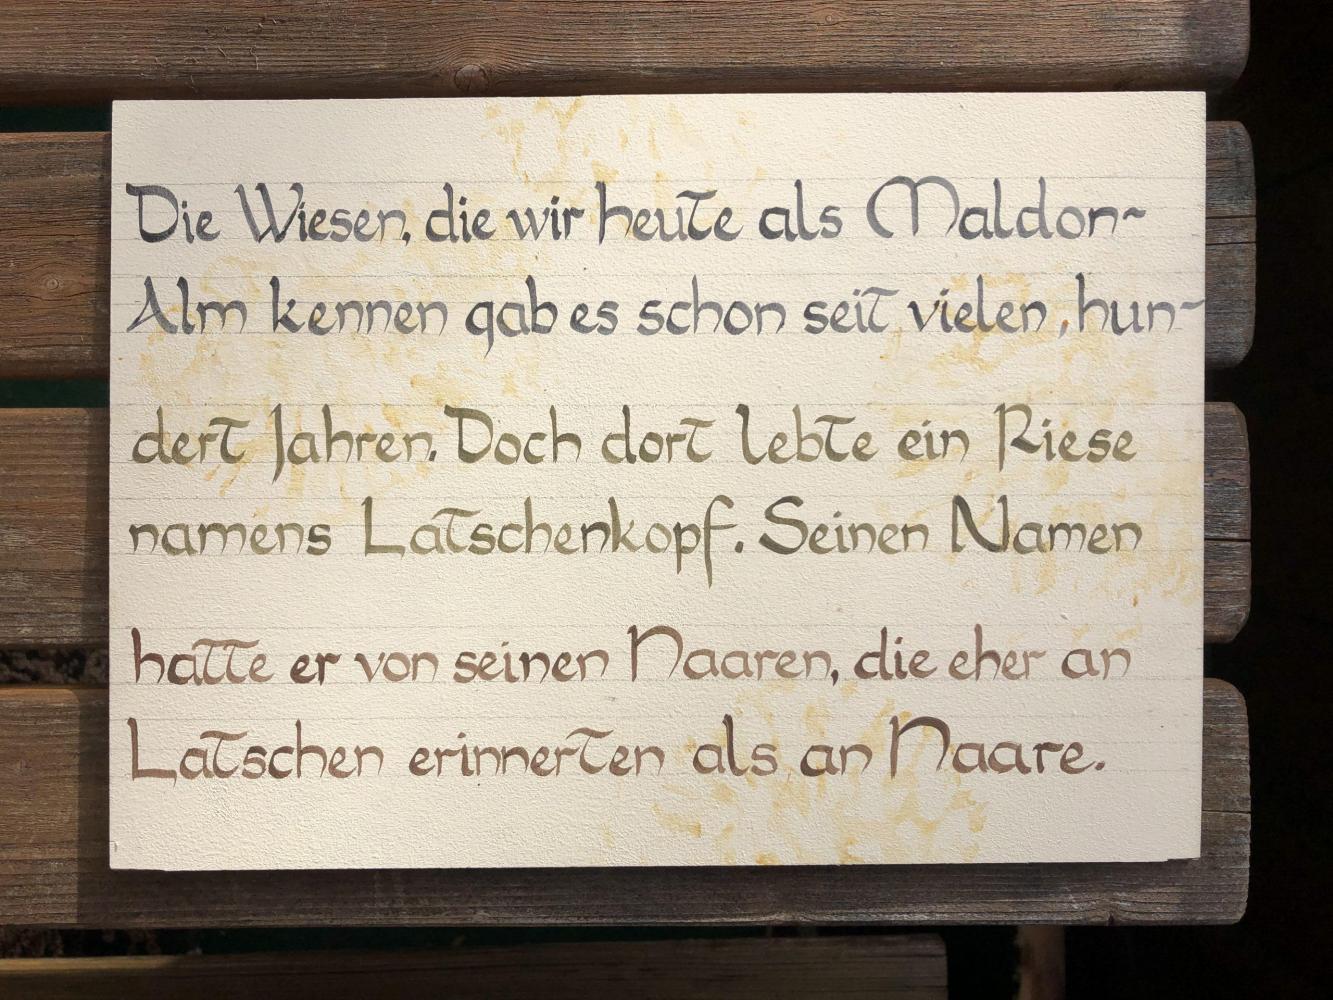 Die Wiesen, die wir heute als Maldon-
Alm kennen gab es schon seit vielen, hun-
dert Jahren. Doch dort lebte ein Riese
namens Latschenkopf. Seinen Namen
hatte er von seinen Haaren, die eher an
Latschen erinnerten als an Haare.